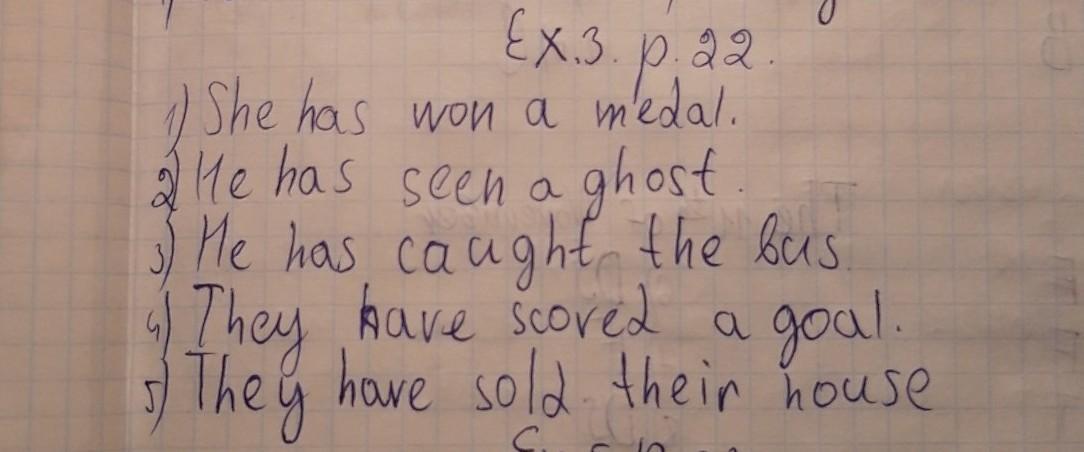 Ex.3. p.22.
1) She has won a medal.
2) He has seen a ghost.
3) He has caught the bus
4) They have scored a goal.
5) They have sold their house